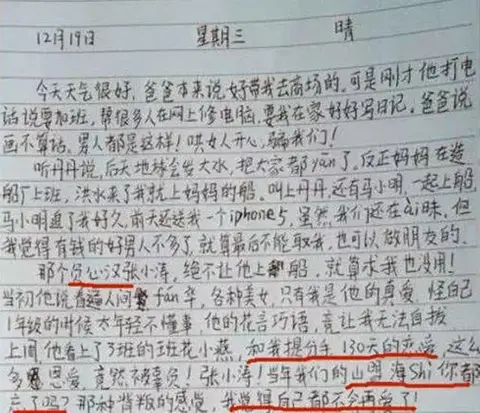 12月19日 星期三 晴
今天天气很好，爸爸本来说好带我去商场的，可是刚才他打电
话说要加班，帮很多人在网上修电脑，要我在家好好写日记。爸爸说
画不算话，男人都是这样！哄女人开心，骗我们！
听丹丹说，后天地球会发大水，把大家都yan了。反正妈妈在造
船厂上班，洪水来了我就上妈妈的船。叫上丹丹还有马小明，一起上船，
马小明追了我好久，前天还送我一个iphone5，虽然我们还在ài昧，但
我觉得有钱的好男人不多了，就算最后不能取我，也可以做朋友的。
那个分心汉张小涛，绝不让他上船，就算求我也没用！
当初他说看遍人间fan华，各种美女，只有我是他的真爱，怪自己
1年级的时候太年轻不懂事，他的花言巧语，竟让我无法自拔
上周他看上了3班的班花小燕，和我提分手，130天的恋爱，这么
多恩爱，竟然被辜负！张小涛！当年我们的山盟海Shi你都
忘了吗？那种背叛的感觉，我觉得自己都不会再爱了！